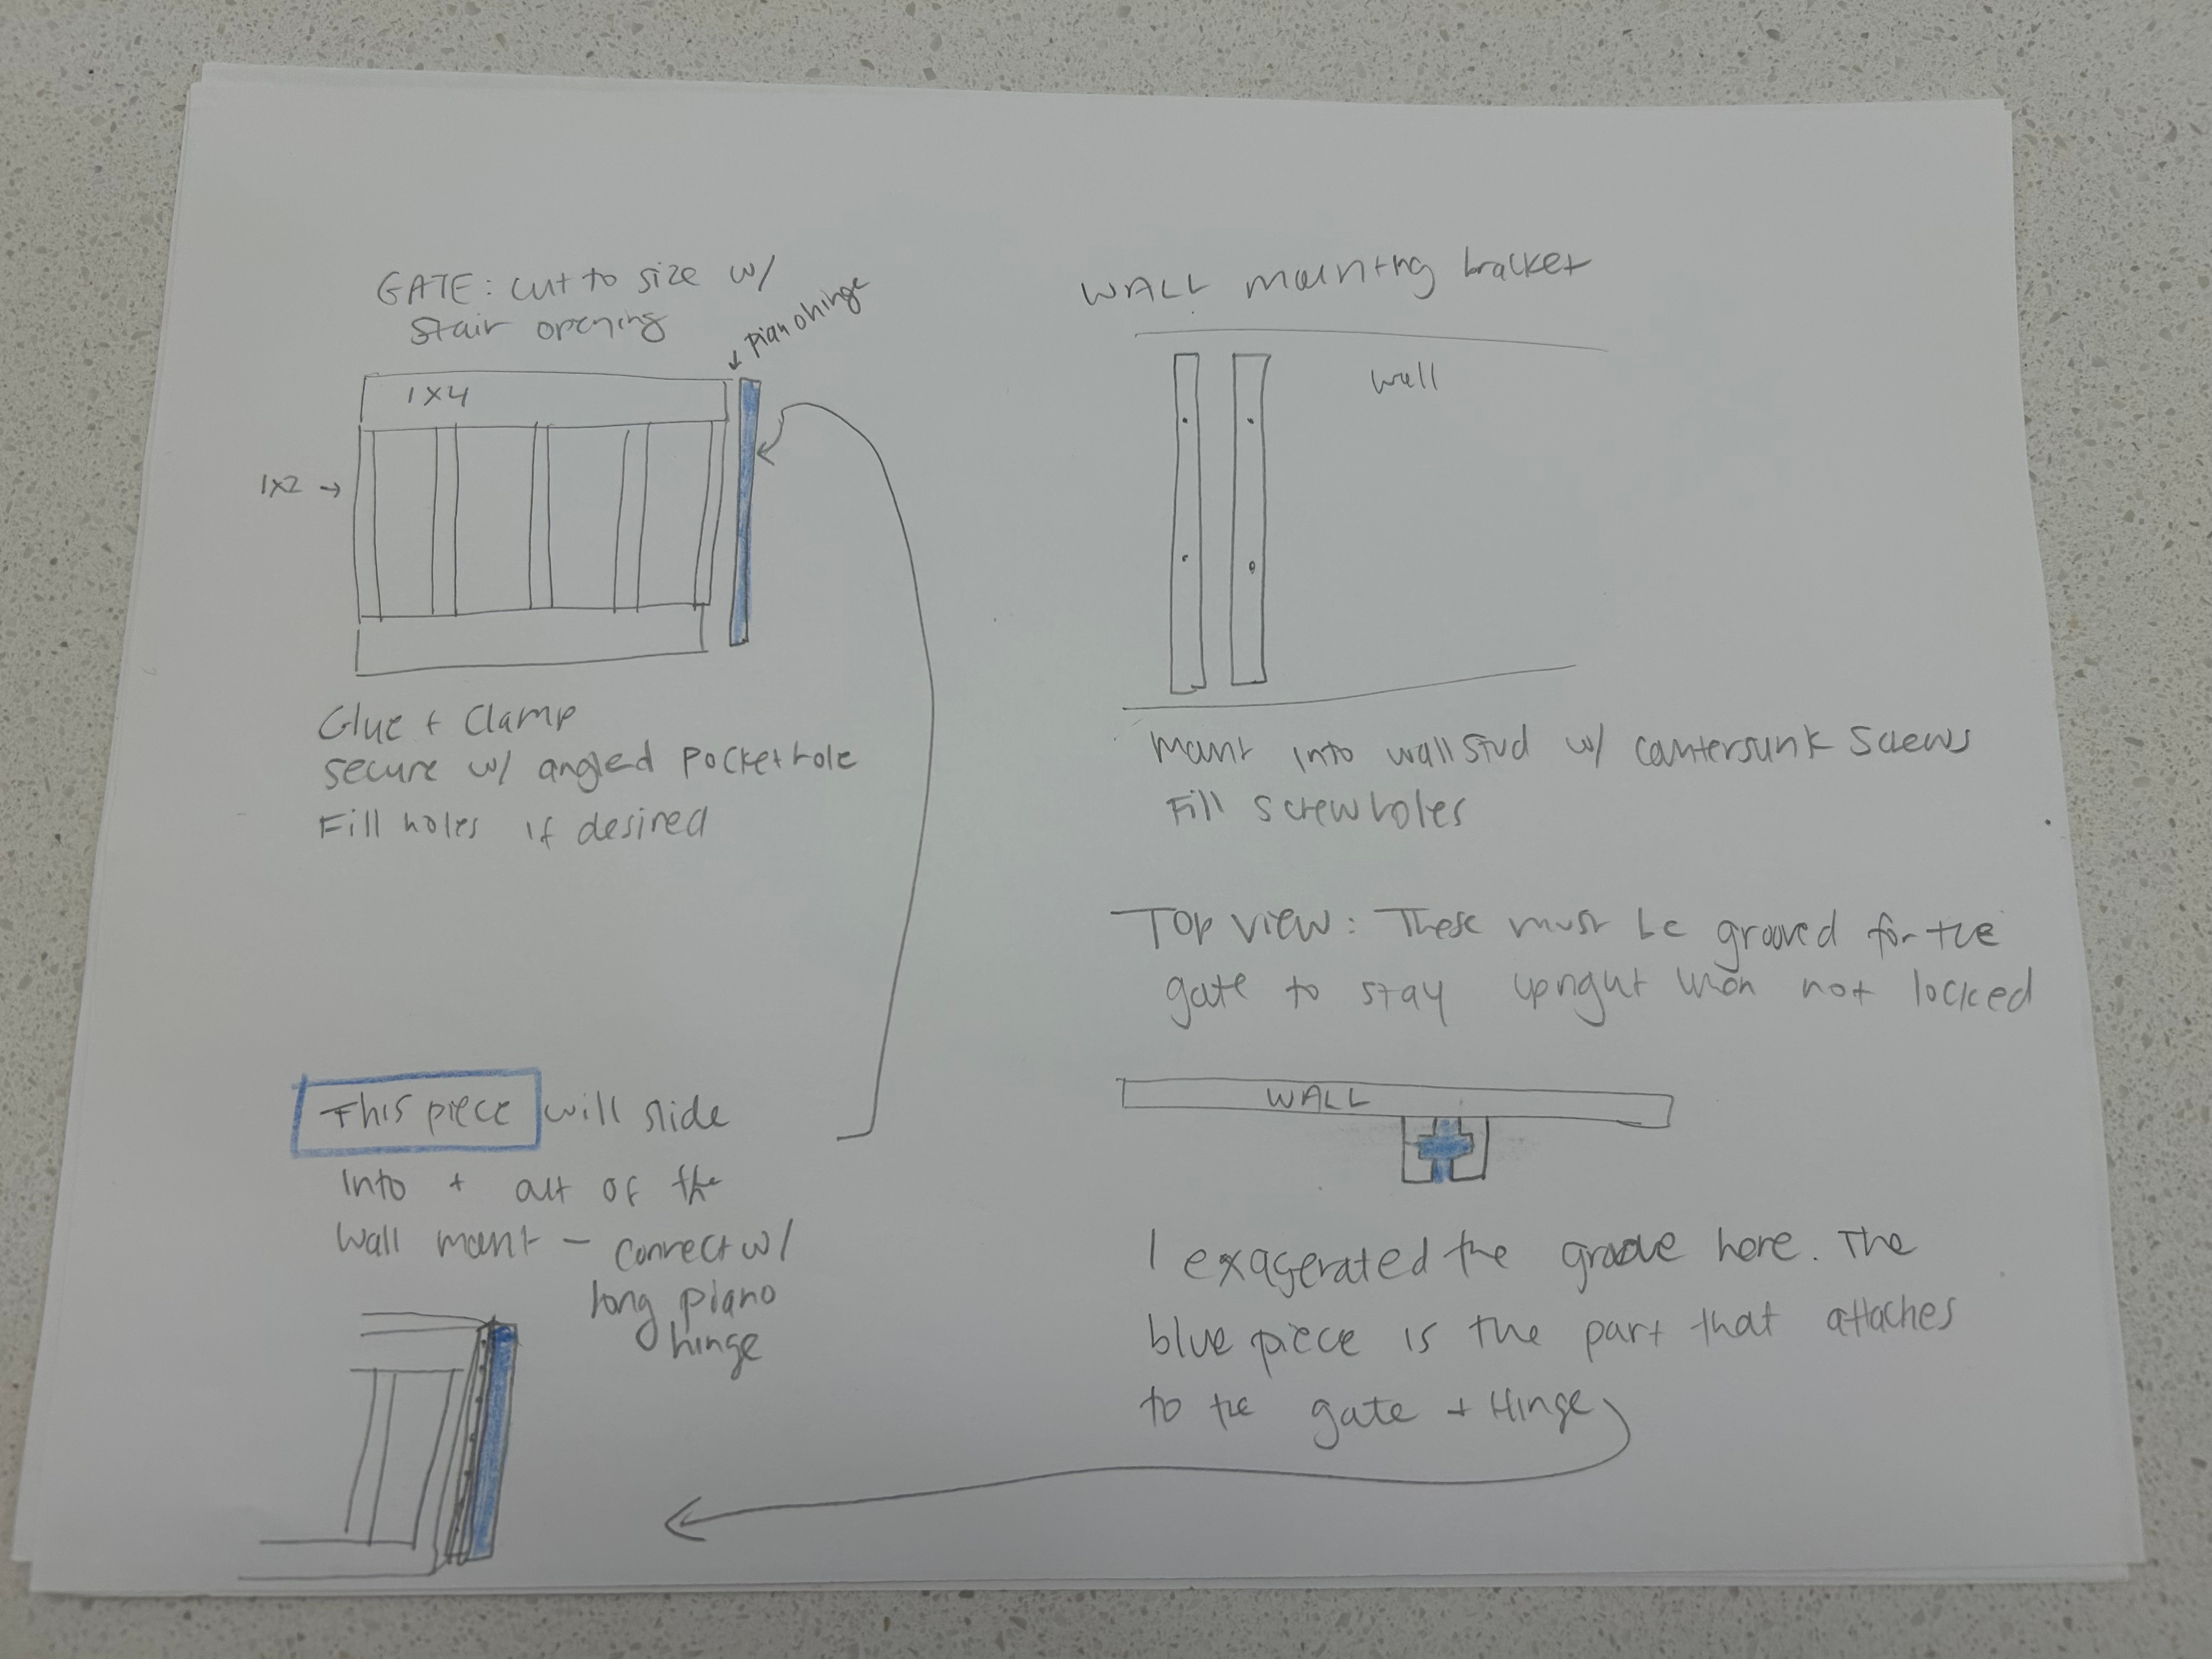 GATE: cut to size w/
stair opening
piano hinge
1x4
1x2
Glue + Clamp
secure w/ angled pockethole
Fill holes if desired
This piece will slide
into + out of the
wall mount - connect w/
long piano
hinge
WALL mounting bracket
wall
mount into wall stud w/ countersunk screws
Fill screwholes
Top view: These must be grooved for the
gate to stay upright when not locked
WALL
I exagerated the groove here. The
blue piece is the part that attaches
to the gate + Hinge